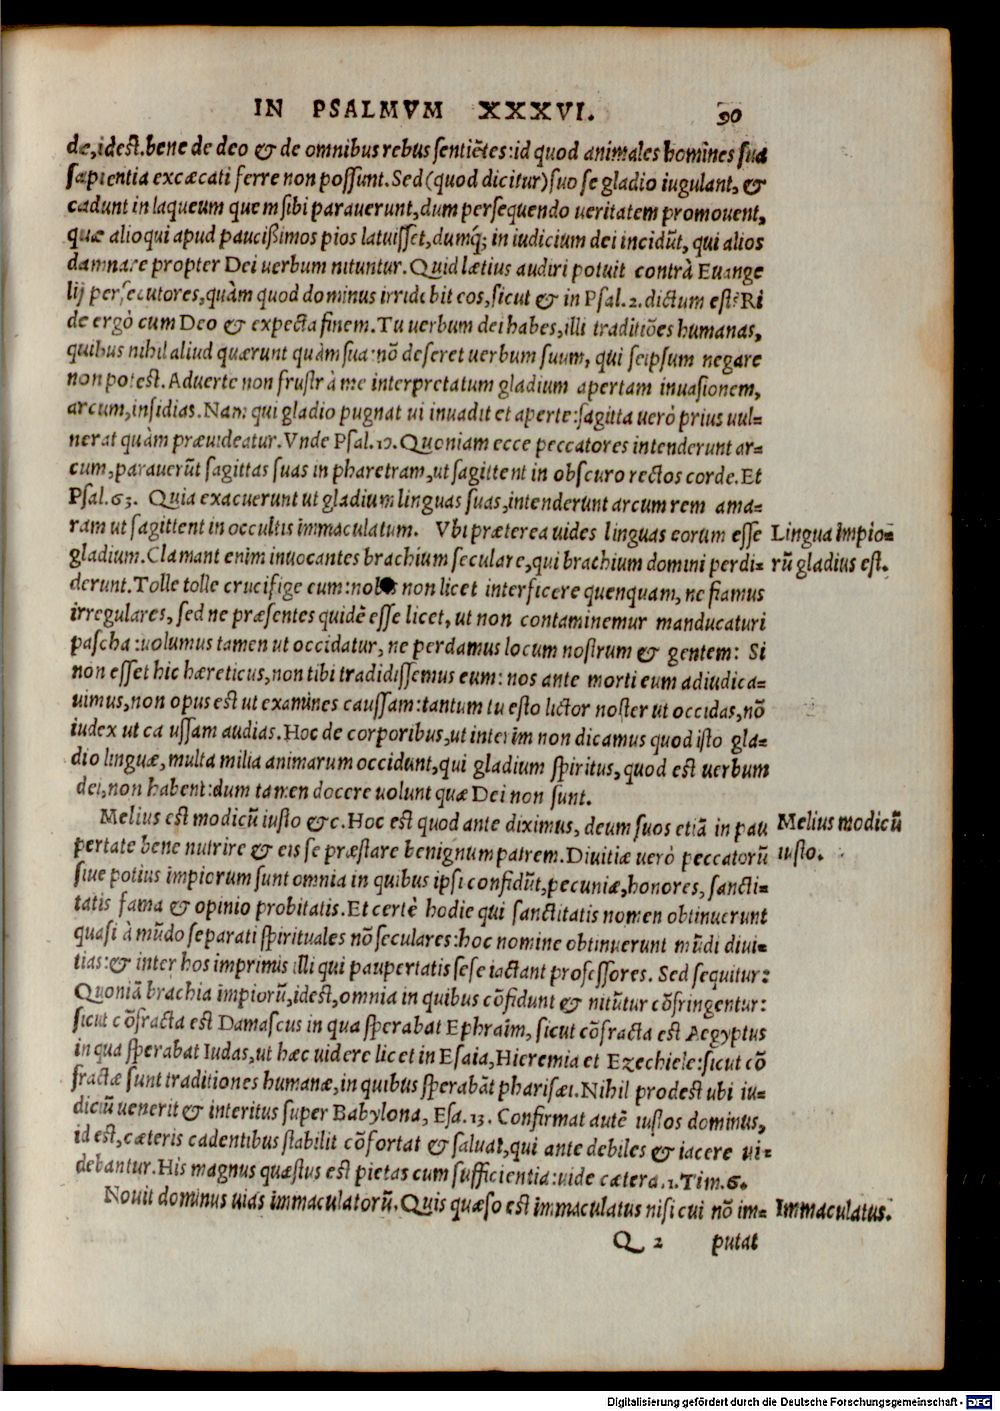 IN PSALMVM XXXVI. 90
dæ, idest. bene de deo & de omnibus rebus sentiẽtes: id quod animales homines sua
sapientia excæcati ferre non possunt. Sed (quod dicitur) suo se gladio iugulant, &
cadunt in laqueum quem sibi parauerunt, dum persequendo ueritatem promouent,
quæ alioqui apud paucißimos pios latuisset, dumq́; in iudicium dei incidũt, qui alios
damnare propter Dei uerbum nituntur. Quid lætius audiri potuit contrà Euange
lij persecutores, quàm quod dominus irridebit eos, sicut & in Psal. 2. dictum est? Ri
de ergò cum Deo & expecta finem. Tu uerbum dei habes, illi traditiões humanas,
quibus nihil aliud quærunt quàm sua: nõ deseret uerbum suum, qui seipsum negare
non potest. Aduerte non frustrà me interpretatum gladium apertam inuasionem,
arcum, insidias. Nam qui gladio pugnat ui inuadit et aperte: sagitta uerò prius uul=
nerat quàm præuideatur. Vnde Psal. 10. Quoniam ecce peccatores intenderunt ar=
cum, parauerũt sagittas suas in pharetram, ut sagittent in obscuro rectos corde. Et
Psal. 63. Quia exacuerunt ut gladium linguas suas, intenderunt arcum rem ama=
ram ut sagittent in occultis immaculatum. Vbi præterea uides linguas eorum esse
Lingua impio=
gladium. Clamant enim inuocantes brachium seculare, qui brachium domini perdi=
rũ gladius est.
derunt. Tolle tolle crucifige eum: nobis non licet interficere quenquam, ne fiamus
irregulares, sed ne præsentes quidẽ esse licet, ut non contaminemur manducaturi
pascha: uolumus tamen ut occidatur, ne perdamus locum nostrum & gentem: Si
non esset hic hæreticus, non tibi tradidissemus eum: nos ante morti eum adiudica=
uimus, non opus est ut examines caussam: tantum tu esto lictor noster ut occidas, nõ
iudex ut caussam audias. Hoc de corporibus, ut interim non dicamus quod isto gla=
dio linguæ, multa milia animarum occidunt, qui gladium spiritus, quod est uerbum
dei, non habent: dum tamen docere uolunt quæ Dei non sunt.
Melius est modicũ iusto &c. Hoc est quod ante diximus, deum suos etiã in pau
Melius modicũ
pertate bene nutrire & eis se præstare benignum patrem. Diuitiæ uerò peccatorũ
iusto.
siue potius impiorum sunt omnia in quibus ipsi confidũt, pecuniæ, honores, sancti=
tatis fama & opinio probitatis. Et certè hodie qui sanctitatis nomen obtinuerunt
quasi à mũdo separati spirituales nõ seculares: hoc nomine obtinuerunt mũdi diui=
tias: & inter hos imprimis illi qui paupertatis sese iactant professores. Sed sequitur:
Quoniã brachia impiorũ, idest, omnia in quibus cõfidunt & nitũtur cõfringentur:
sicut cõfracta est Damascus in qua sperabat Ephraim, sicut cõfracta est Aegyptus
in qua sperabat Iudas, ut hæc uidere licet in Esaia, Hieremia et Ezechiele: sicut cõ
fractæ sunt traditiones humanæ, in quibus sperabãt pharisæi. Nihil prodest ubi iu=
diciũ uenerit & interitus super Babylona, Esa. 13. Confirmat autẽ iustos dominus,
id est, cæteris cadentibus stabilit cõfortat & saluat, qui ante debiles & iacere ui=
debantur. His magnus quæstus est pietas cum sufficientia: uide cætera. 1. Tim. 6.
Nouit dominus uias immaculatorũ. Quis quæso est immaculatus nisi cui nõ im=
Immaculatus.
Q 2 putat
Digitalisierung gefördert durch die Deutsche Forschungsgemeinschaft - DFG